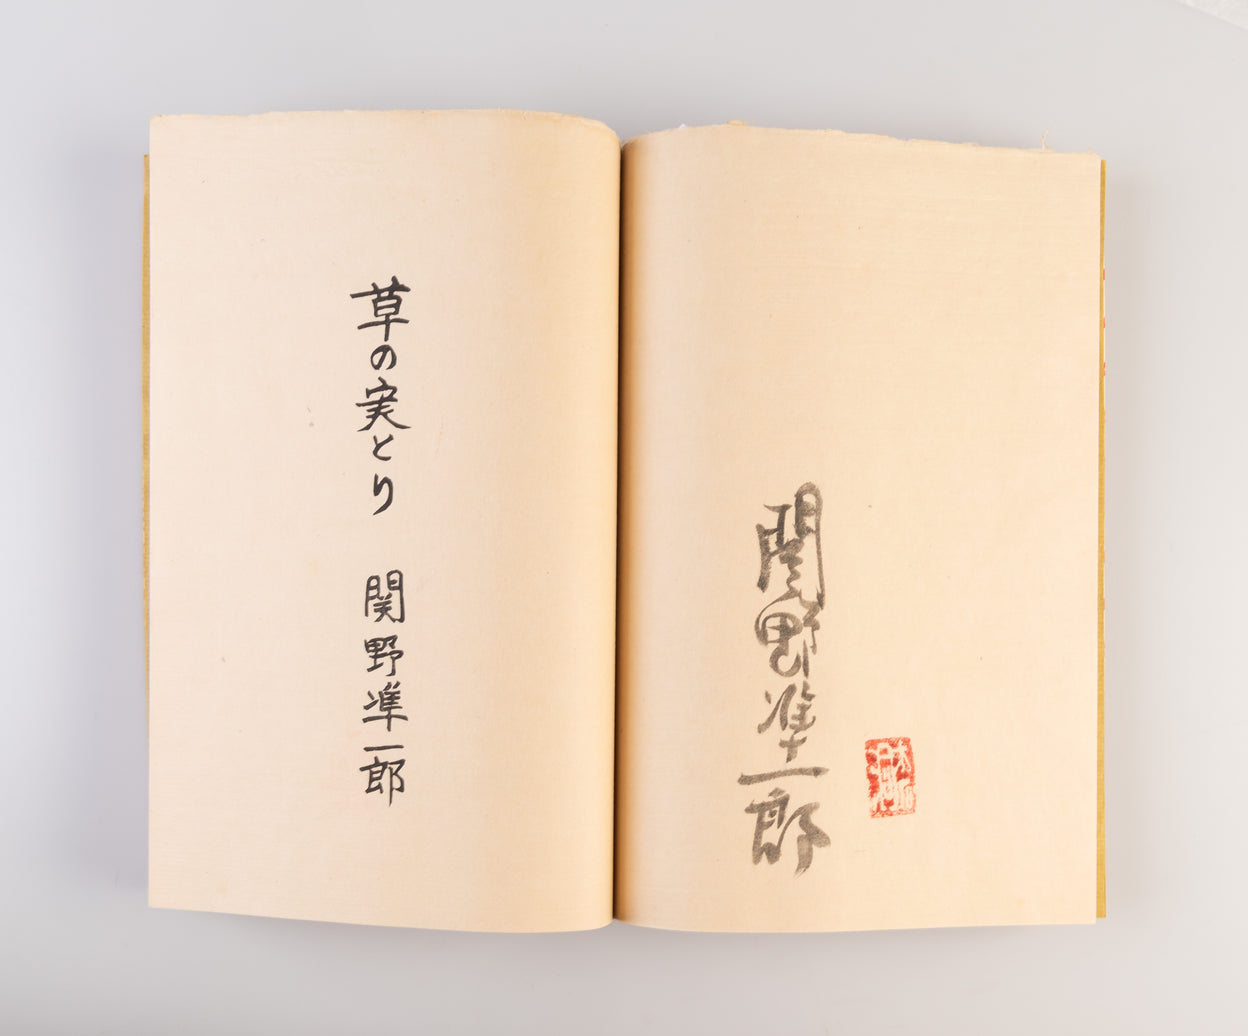 関野凖一郎
草の実とり 関野凖一郎